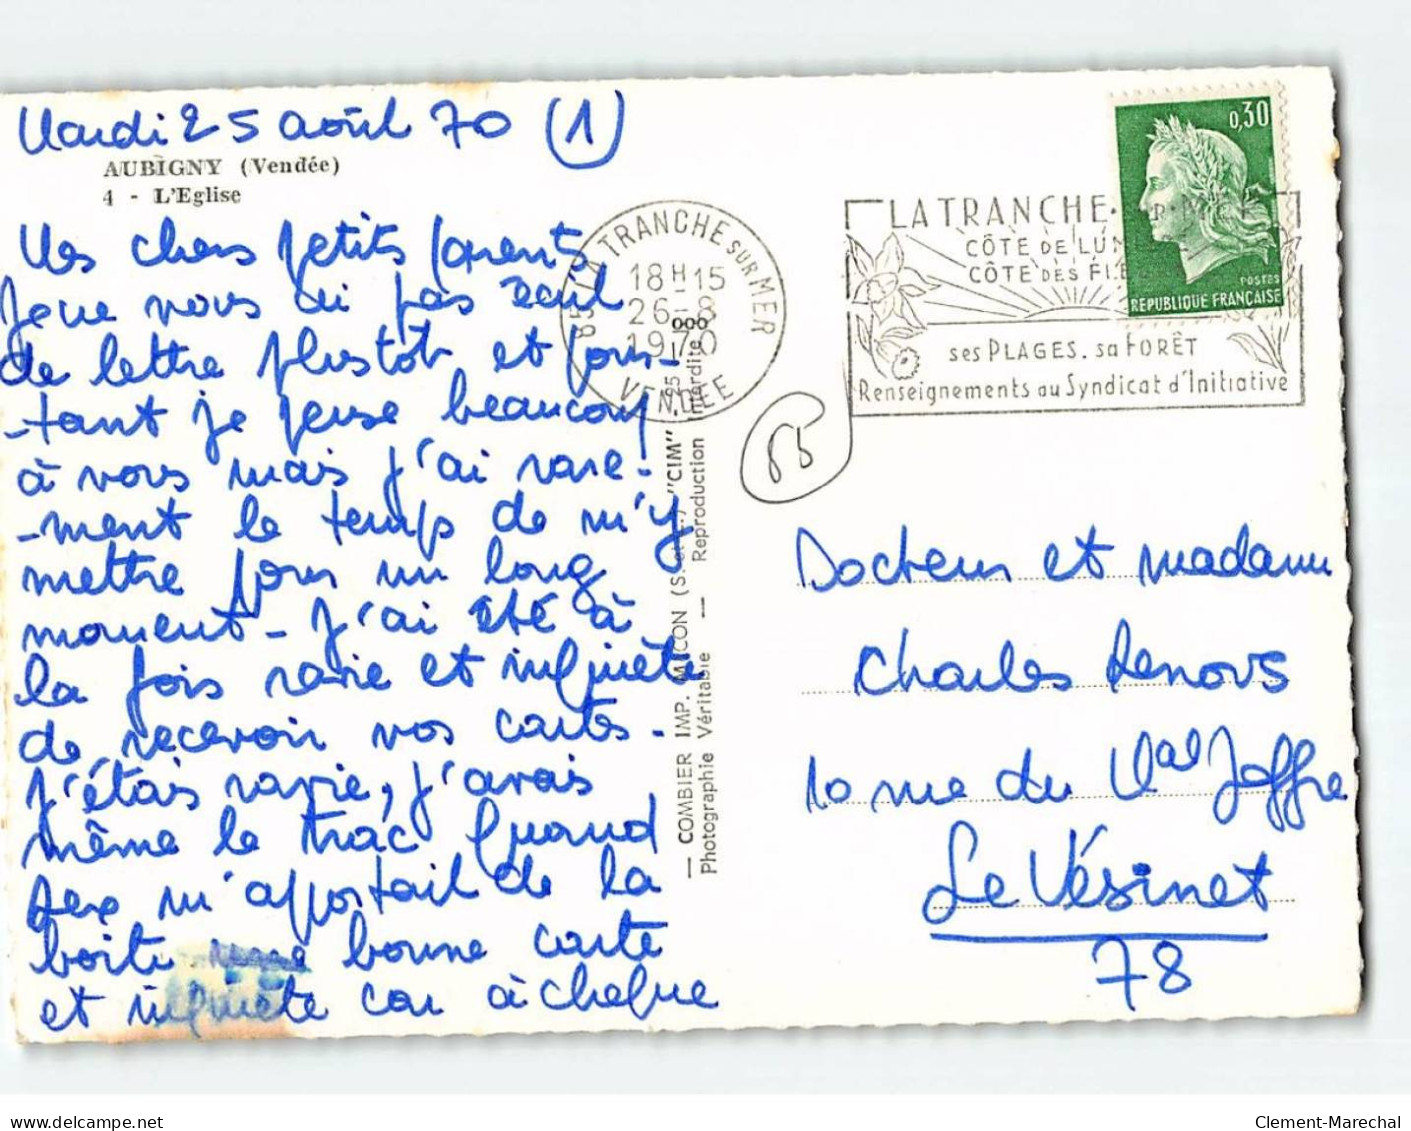 Mardi 25 août 70 (1)
AUBIGNY (Vendée)
4 - L'Eglise
Mes chers petits parents,
Je ne vous ai pas écrit
de lettre plustôt et pour-
-tant je pense beaucoup
à vous mais j'ai rare-
-ment le temps de m'y
mettre pour un long
moment - j'ai été à
la fois ravie et inquiète
de recevoir vos cartes -
J'étais ravie, j'avais
même le trac quand
m'apportait de la
boite bonne carte
et inquiète car à chaque
85 LA TRANCHE SUR MER
18H-15
26-8
1970
VENDÉE
LA TRANCHE
CÔTE DE LUM
CÔTE DES FLE
ses PLAGES. sa FORÊT
Renseignements au Syndicat d'Initiative
0,30
POSTES
REPUBLIQUE FRANÇAISE
85
— COMBIER IMP. MACON (S.-et-L.) "CIM"
Photographie Véritable — Reproduction Interdite
Docteur et madame
Charles Renovs
10 rue du Val Joffre
Le Vésinet
78
delcampe.net
Clement-Marechal